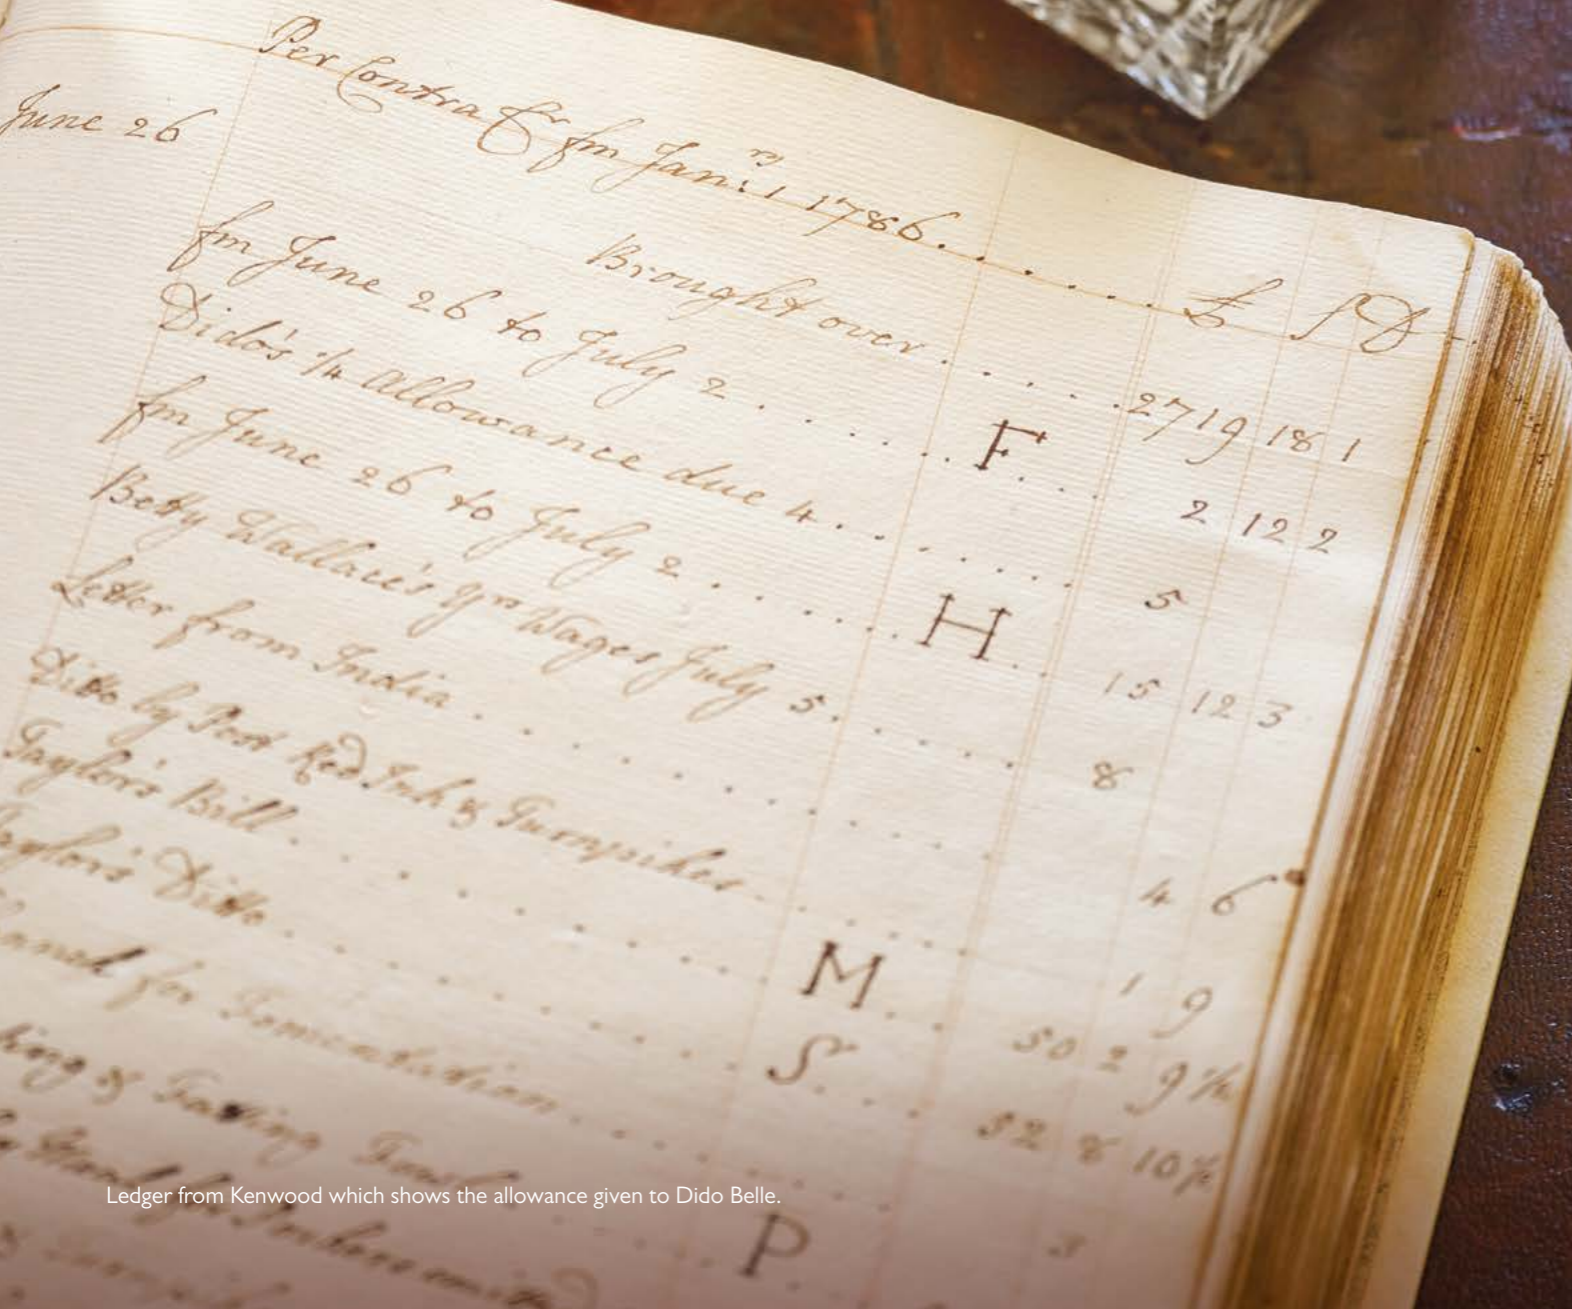 Per Contra Cr fm Janry: 1 1786. £ S D
June 26
Brought over 2719 18 1
fm June 26 to July 2 F 2 12 2
Dido's 1/4 Allowance due 4 5
fm June 26 to July 2 H 15 12 3
Betty Wallace's Yrs Wages July 5 8
Letter from India 4 6
Ditto by Post Red Ink & Turnpikes 1 9
Taylor's Bill M 50 2 9 1/2
Ditto S 32 8 10 1/2
for Fomentation 3
&
P
Ledger from Kenwood which shows the allowance given to Dido Belle.